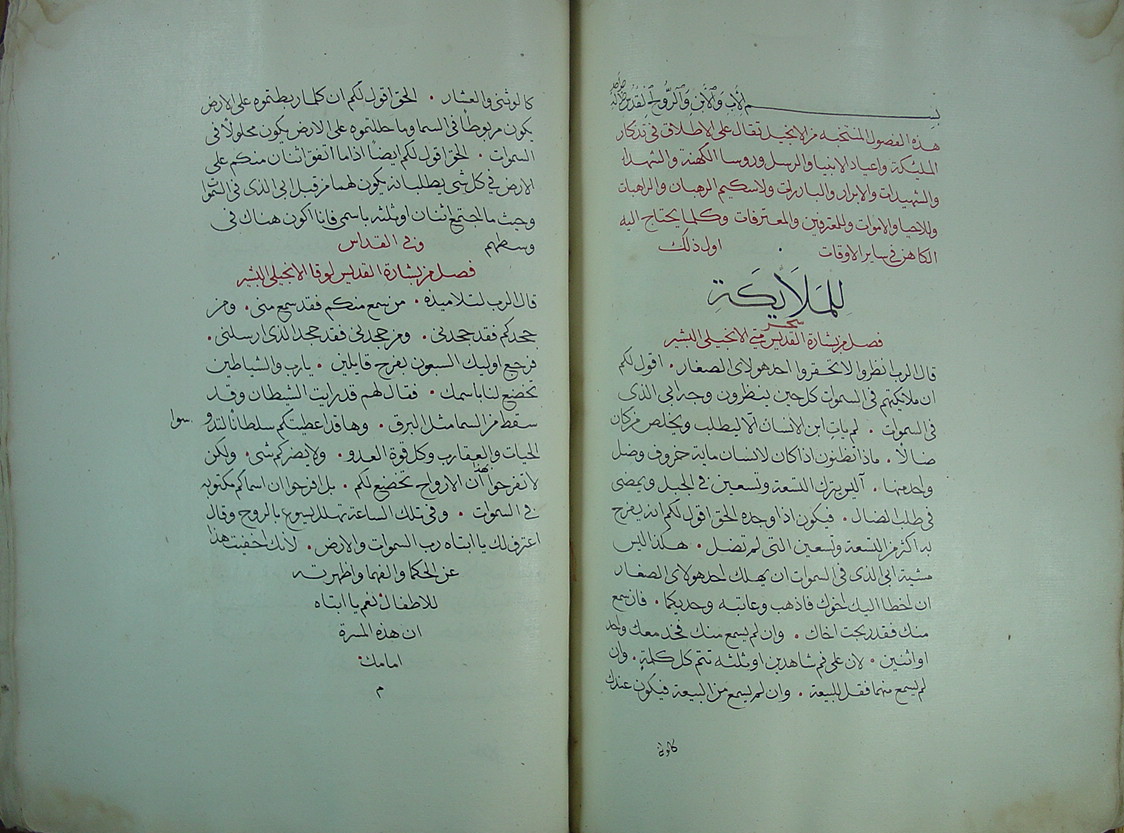 بسم الاب والابن والروح القدس اله واحد
هذه الفصول المنتخبه من الانجيل تقال على الاطلاق في تذكار
المليكة واعياد الانبيا والرسل وروسا الكهنة والشهدا
والشهيدات والابرار والبارات ولاسكيم الرهبان والراهبات
وللاحيا والاموات والمعترفين والمعترفات وكلما يحتاج اليه
الكاهن في ساير الاوقات اول ذلك
للملايكة
سحر
فصل من بشارة القديس متى الانجيلي البشير
قال الرب انظروا لا تحتقروا احد هولاى الصغار. اقول لكم
ان ملايكتهم في السموات كل حين ينظرون وجه ابي الذى
في السموات. لم يات ابن الانسان الا ليطلب ويخلص من كان
ضالا. ماذا تظنون اذا كان لانسان ماية خروف وضل
واحد منها. اليس يترك التسعة وتسعين في الجبل ويمضى
في طلب الضال. فيكون اذا وجده الحق اقول لكم انه يفرح
به اكثر من التسعة وتسعين التى لم تضل. هكذا ليس
مشية ابي الذى في السموات ان يهلك احد هولاى الصغار
ان اخطا اليك اخوك فاذهب وعاتبه وحديكما. فان سمع
منك فقد ربحت اخاك. وان لم يسمع منك فخذ معك واحد
او اثنين. لان على فم شاهدين او ثلثه تتم كل كلمة. وان
لم يسمع منهما فقل للبيعة. وان لم يسمع من البيعة فيكون عندك
كالوثني
كالوثنى والعشار. الحق اقول لكم ان كلما ربطتموه على الارض
يكون مربوطا في السما وما حللتموه على الارض يكون محلولا في
السموات. الحق اقول لكم ايضا اذا ما اتفق اثنان منكم على
الارض في كل شى يطلبانه يكون لهما من قبل ابي الذى في السموات
وحيث ما اجتمع اثنان او ثلثه باسمى فانا اكون هناك في
وسطهم وفي القداس
فصل من بشارة القديس لوقا الانجيلى البشير
قال الرب لتلاميذه. من سمع منكم فقد سمع منى. ومن
جحدكم فقد جحدنى. ومن جحدنى فقد جحد الذى ارسلنى.
فرجع اوليك السبعون بفرح قايلين. يارب والشياطين
تخضع لنا باسمك. فقال لهم قد رايت الشيطان وقد
سقط من السما مثل البرق. وها قد اعطيتكم سلطانا لتدوسوا
الحيات والعقارب وكل قوة العدو. ولا يضركم شى. ولكن
لا تفرحوا بهذا ان الارواح تخضع لكم. بل افرحوا ان اسماكم مكتوبه
في السموات. وفي تلك الساعة تهلل يسوع بالروح وقال
اعترف لك يا ابتاه رب السموات والارض. لانك اخفيت هذا
عن الحكما والفهما واظهرته
للاطفال نعم يا ابتاه
ان هذه المسرة
امامك.
م